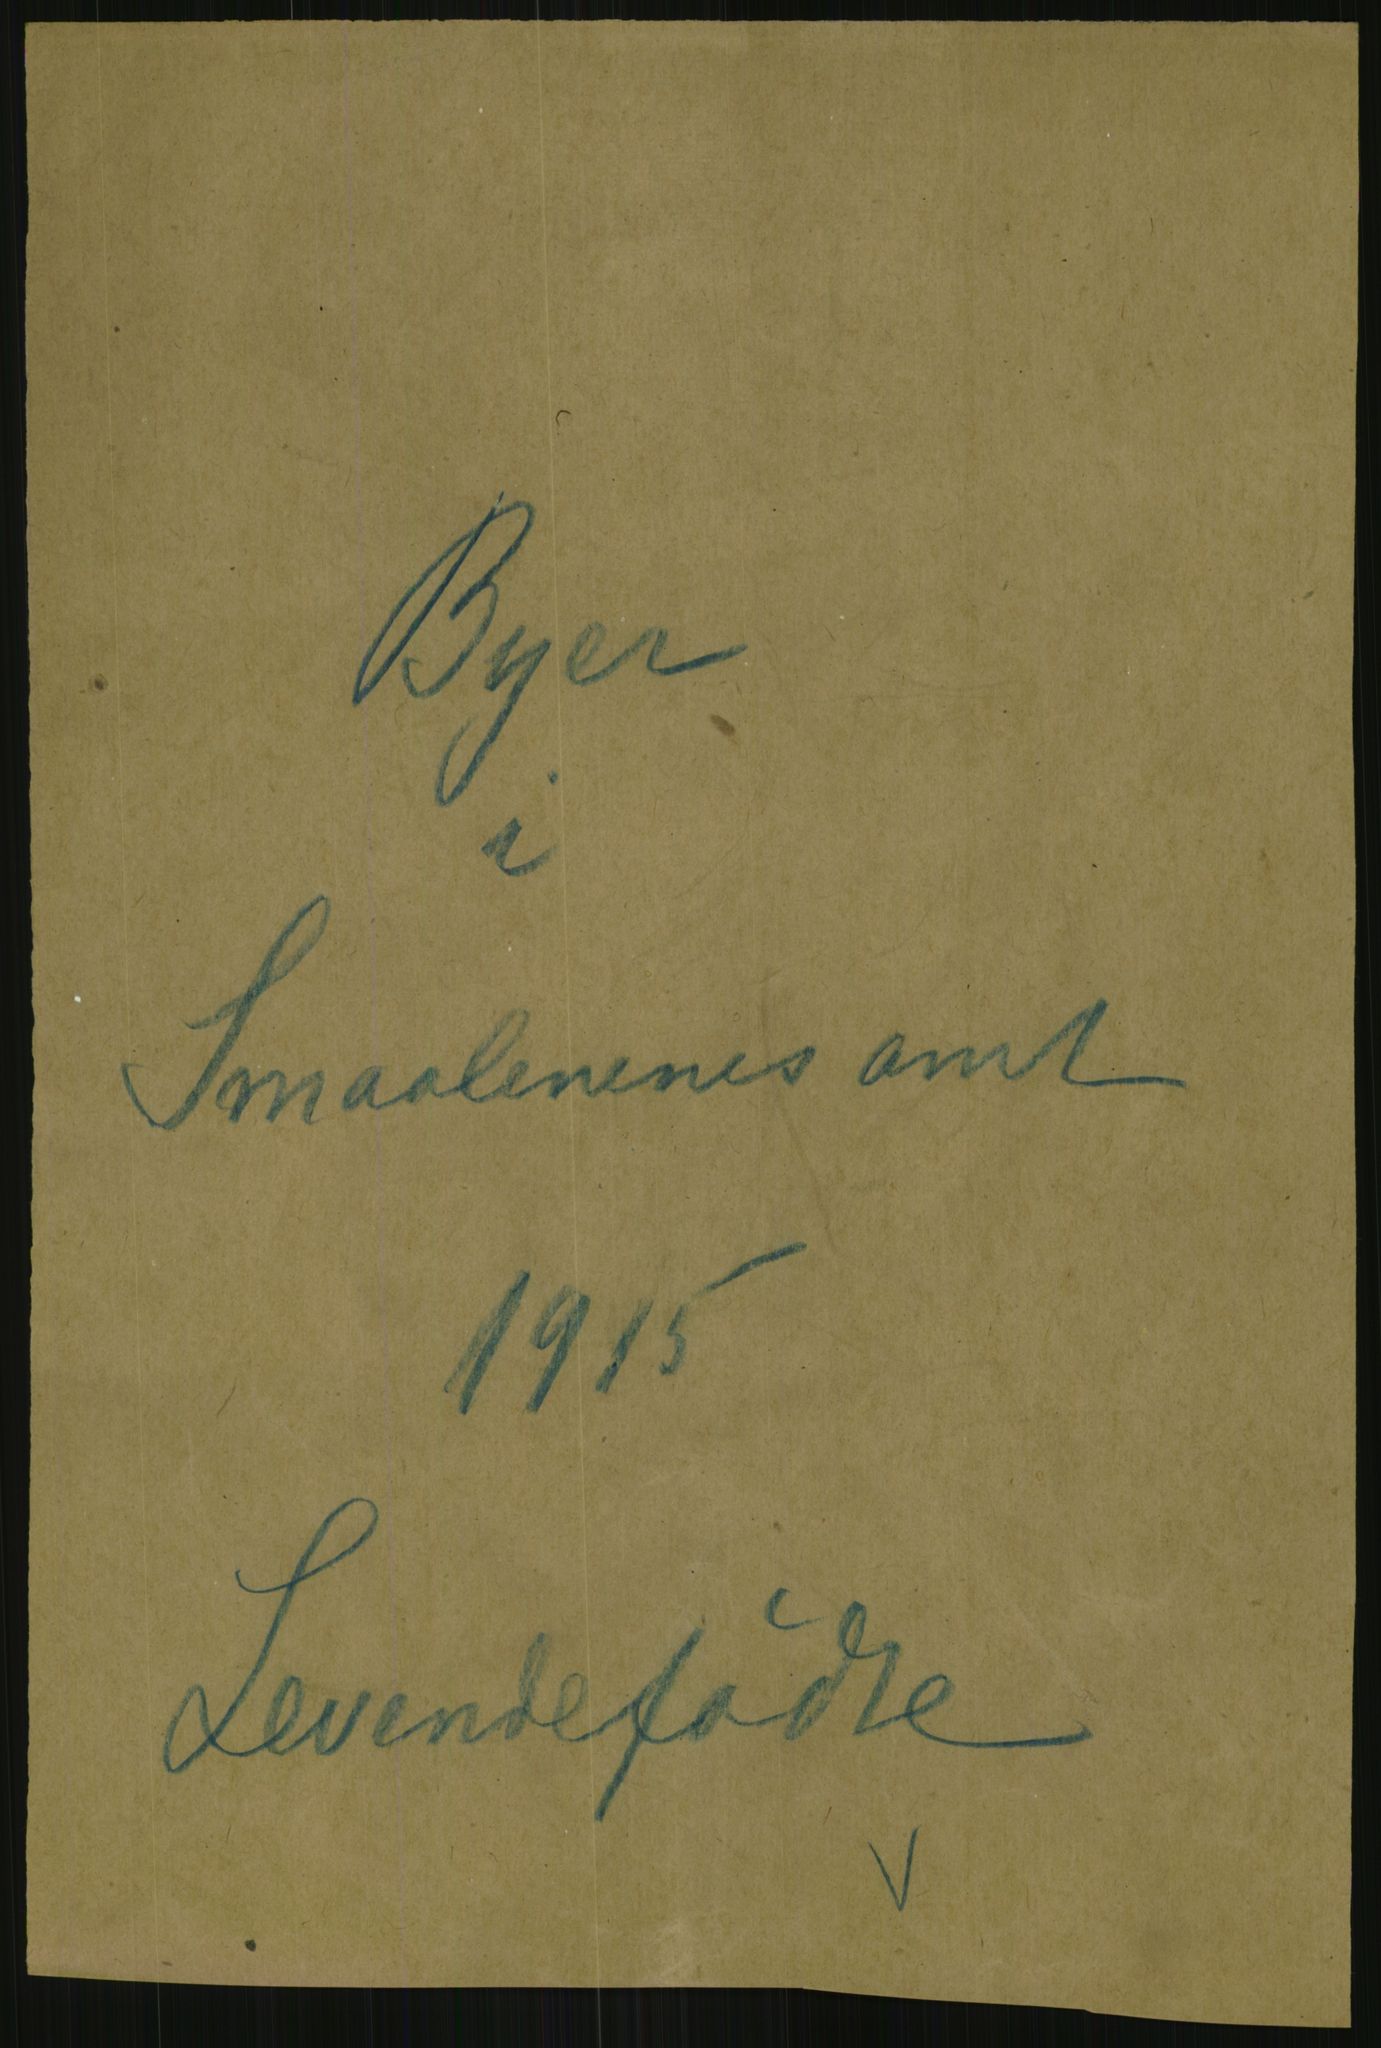 Byer
i
Smaalenenes amt
1915
Levendefödte
V